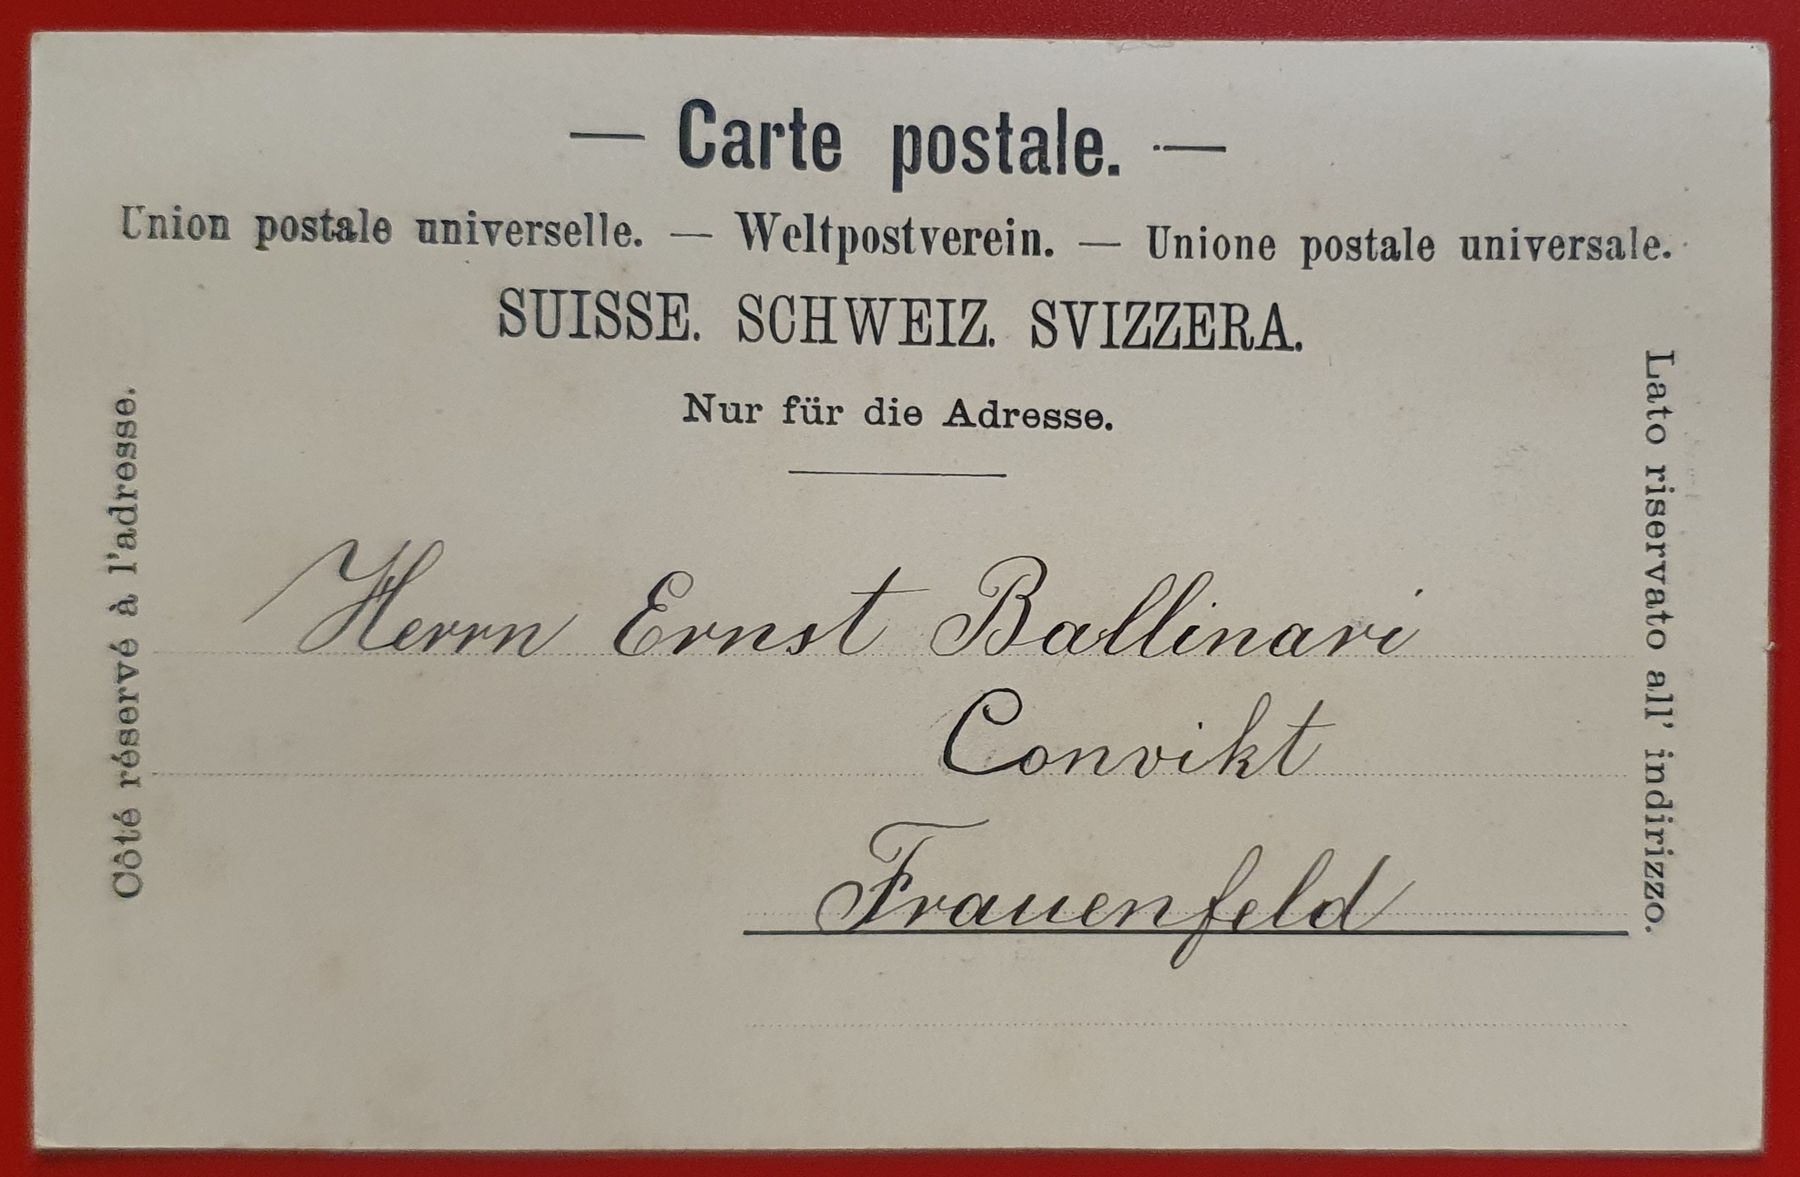 — Carte postale. —
Union postale universelle. — Weltpostverein. — Unione postale universale.
SUISSE. SCHWEIZ. SVIZZERA.
Nur für die Adresse.
Côté réservé à l'adresse.
Lato riservato all' indirizzo.
Herrn Ernst Ballinari
Convikt
Frauenfeld